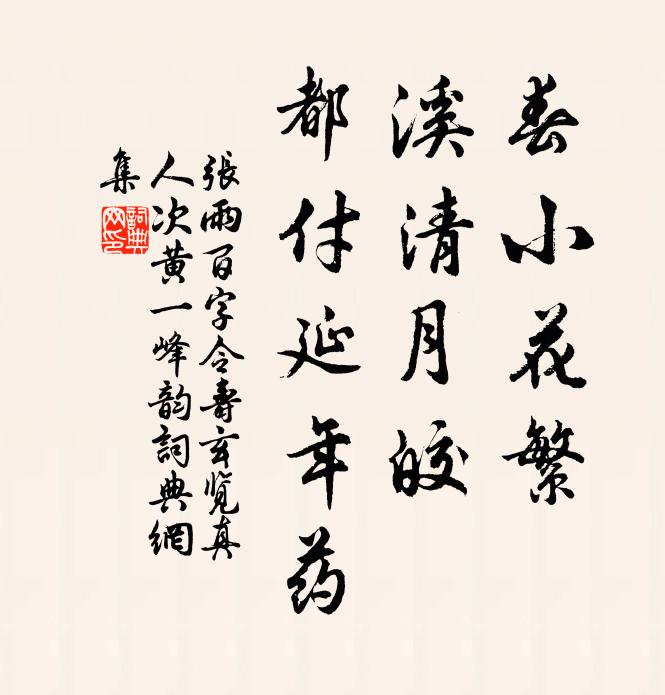 春小花繁
溪清月皎
都付延年药
張雨百字令壽玄覽真
人次黄一峰韵詞典網
集
詞典網印